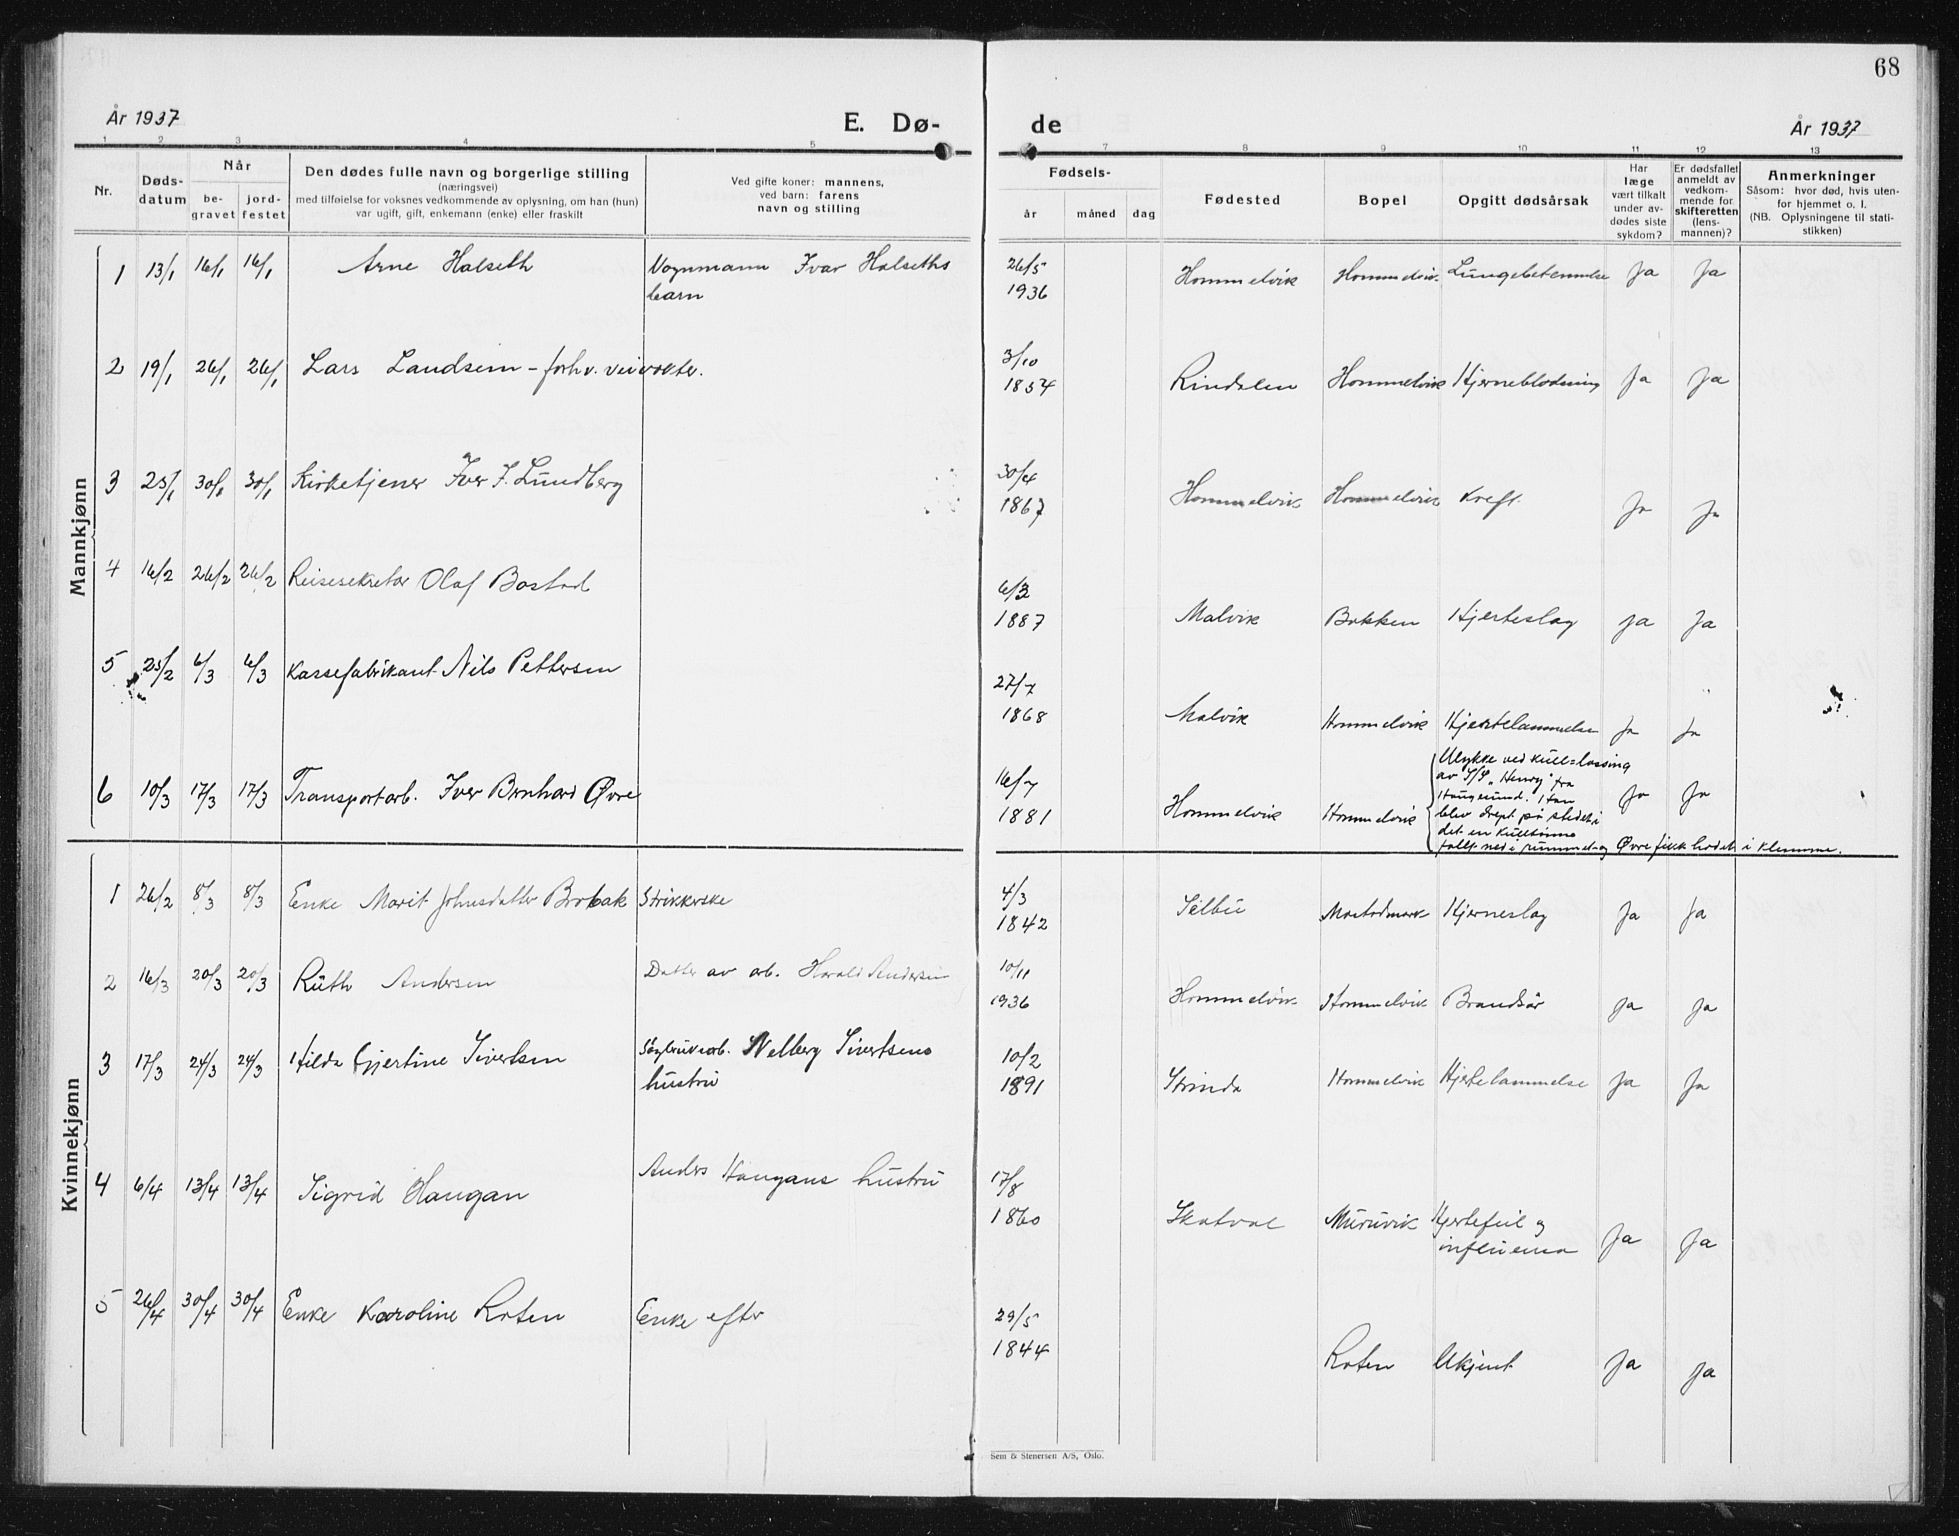 68
År 1937 E. Dø- de År 1937
1 2 3 4 5 7 8 9 10 11 12 13
Nr.
Døds-
datum
Når
be-
gravet
jord-
festet
Den dødes fulle navn og borgerlige stilling
(næringsvei)
med tilføielse for voksnes vedkommende av oplysning, om han (hun)
var ugift, gift, enkemann (enke) eller fraskilt
Ved gifte koner: mannens,
ved barn: farens
navn og stilling
Fødsels-
år måned dag
Fødested
Bopel
Opgitt dødsårsak
Har
læge
vært tilkalt
under av-
dødes siste
sykdom?
Er dødsfallet
anmeldt av
vedkom-
mende for
skifteretten
(lens-
mannen)?
Anmerkninger
Såsom: hvor død, hvis uten-
for hjemmet o. l.
(NB. Oplysningene til stati-
stikken)
Mannkjønn
1 13/1 16/1 16/1 Arne Halseth Vognmann Ivar Halseths
barn
26/5
1936 Hommelvik Hommelvik Lungebetennelse Ja Ja
2 19/1 26/1 26/1 Lars Landsem - forhv. veivokter.
3/10
1854 Rindalen Hommelvik Hjerneblødning Ja Ja
3 25/1 30/1 30/1 Kirketjener Iver J. Lundberg
30/4
1867 Hommelvik Hommelvik Kreft Ja Ja
4 16/2 26/2 26/2 Reisesekretær Olaf Bostad
6/3
1887 Malvik Bakken Hjerteslag Ja Ja
5 25/2 6/3 6/3 Kassefabrikant Nils Pettersen
27/7
1868 Malvik Hommelvik Hjertelammelse Ja Ja
6 10/3 17/3 17/3 Transportarb. Iver Bernhard Øvre
16/7
1881 Hommelvik Hommelvik Ja Ja
Ulykke ved kull-lossing
av S/S "Henry" fra
Haugesund. Han
blev drept på stedet i
det en kulltønne
fallt ned i rummet og Øvre fikk hodet i klemme.
Kvinnekjønn
1 26/2 8/3 8/3 Enke Marit Johnsdatter Brobak Strikkerske
4/3
1842 Selbu Mostadmark Hjerneslag Ja Ja
2 16/3 20/3 20/3 Ruth Andersen Datter av arb. Harald Andersen
10/11
1936 Hommelvik Hommelvik Brandsår Ja Ja
3 17/3 24/3 24/3 Hilda Gjertine Sivertsen Sagbruksarb. Melberg Sivertsens
hustru
10/2
1891 Strinda Hommelvik Hjertelammelse Ja Ja
4 6/4 13/4 13/4 Sigrid Haugan Anders Haugans hustru
17/8
1860 Skatval Muruvik Hjertefeil og
influensa Ja Ja
5 26/4 30/4 30/4 Enke Karoline Roten Enke efter
29/5
1844 Roten Ukjent Ja Ja
Sem & Stenersen A/S, Oslo.